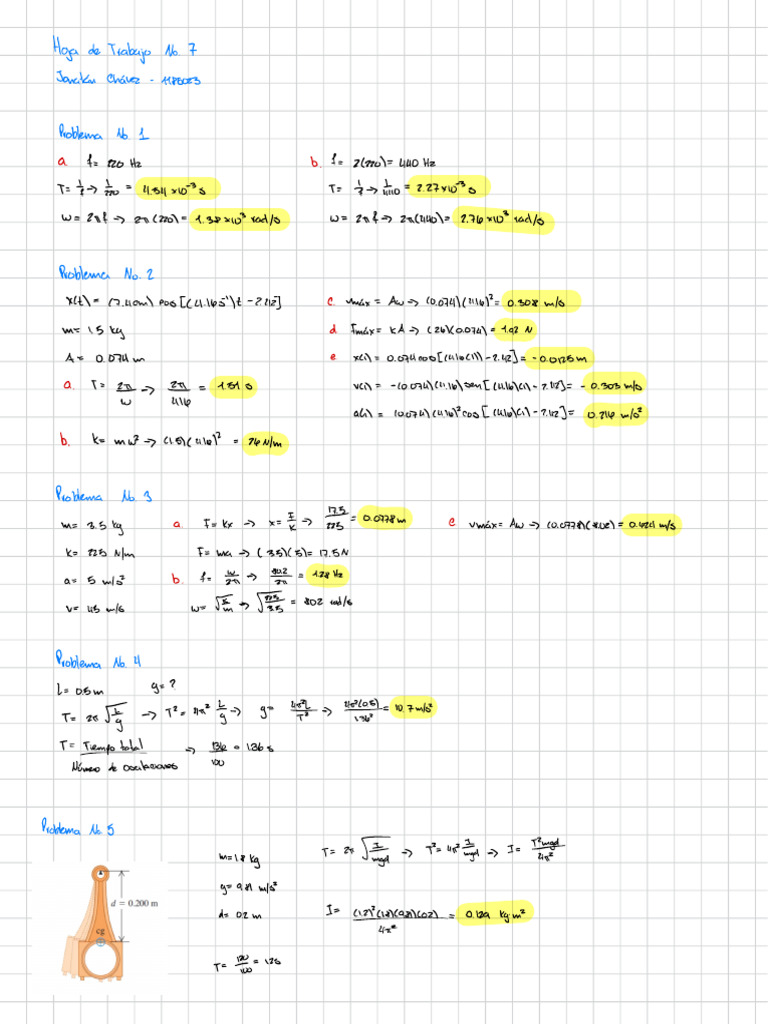 Hoja de Trabajo No. 7
Chávez - 1185023
Problema No. 1
a f = 220 Hz
T = 1/f → 1/220 = 4.54 x10⁻³ s
ω = 2πf → 2π(220) = 1.38x10³ rad/s
b. f = 2(220) = 440 Hz
T = 1/f → 1/440 = 2.27x10⁻³ s
ω = 2πf → 2π(440) = 2.76x10³ rad/s
Problema No. 2
x(t) = (7.40m) cos[(4.16s⁻¹)t - 2.42]
m = 1.5 kg
A = 0.074 m
a. T = 2π/ω → 2π/4.16 = 1.51 s
b. k = mω² → (1.5)(4.16)² = 26 N/m
c. vmáx = Aω → (0.074)(4.16)² = 0.308 m/s
d Fmáx = kA → (26)(0.074) = 1.92 N
e x(1) = 0.074cos[(4.16)(1) - 2.42] = -0.0125m
v(1) = -(0.074)(4.16) sen[(4.16)(1) - 2.42] = -0.303 m/s
a(1) = (0.074)(4.16)² cos[(4.16)(1) - 2.42] = 0.216 m/s²
Problema No. 3
m = 3.5 kg
k = 225 N/m
a = 5 m/s²
v = 45 m/s
a. F = kx → x = F/k → 17.5/225 = 0.0778 m
F = ma → (3.5)(5) = 17.5 N
b. f = ω/2π → 8.02/2π = 1.28 Hz
ω = √k/m → √225/3.5 = 8.02 rad/s
c vmáx = Aω → (0.0778)(8.02) = 0.624 m/s
Problema No. 4
L = 0.5 m g = ?
T = 2π √L/g → T² = 4π² L/g → g = 4π²L/T² → 4π²(0.5)/1.36² = 10.7 m/s²
T = Tiempo total/Número de oscilaciones → 136/100 = 1.36 s
Problema No. 5
m = 1.8 kg
g = 9.81 m/s²
d = 0.2 m
T = 120/100 = 1.2s
T = 2π √I/mgd → T² = 4π² I/mgd → I = T²mgd/4π²
I = (1.2)²(1.8)(9.81)(0.2)/4π² = 0.129 kg·m²
d = 0.200 m
cg